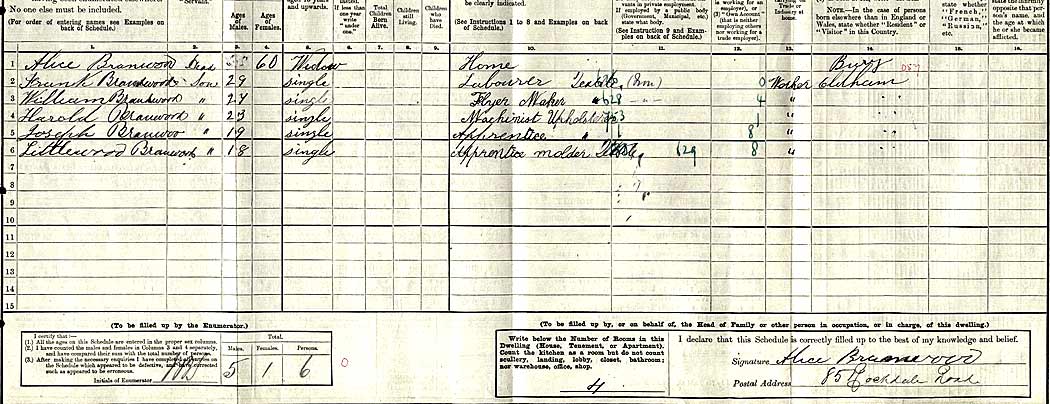 No one else must be included.
(For order of entering names see Examples on back of Schedule.)
Servant.
Ages of Males.
Ages of Females.
and upwards.
If less than one year write "under one".
Total Children Born Alive.
Children still Living.
Children who have Died.
be clearly indicated.
(See Instructions 1 to 8 and Examples on back of Schedule.)
vants in private employment.
If employed by a public body (Government, Municipal, etc.) state what body.
(See Instruction 9 and Examples on back of Schedule.)
is working for an employer), or
(that is neither employing others nor working for a trade employer).
carrying on Trade or Industry at home.
NOTE.—In the case of persons born elsewhere than in England or Wales, state whether "Resident" or "Visitor" in this Country.
state whether "French," "German," "Russian," etc.
opposite that person's name, and the age at which he or she became afflicted.
1. 2. 3. 4. 5. 6. 7. 8. 9. 10. 11. 12. 13. 14. 15. 16.
1 Alice Branwood Head 60 Widow Home Bury
2 Frank Branwood Son 29 single Labourer Textile (Rm) 0 Worker Oldham
3 William Branwood " 27 single Flyer Maker " 628 4 "
4 Harold Branwood " 23 single Machinist Upholsterer 1 "
5 Joseph Branwoo " 19 single Apprentice " 8 "
6 Littlewood Branwood " 18 single Apprentice molder 629 8 "
7
8
9
10
11
12
13
14
15
(To be filled up by the Enumerator.)
I certify that:—
(1.) All the ages on this Schedule are entered in the proper sex columns.
(2.) I have counted the males and females in Columns 3 and 4 separately, and have compared their sum with the total number of persons.
(3.) After making the necessary enquiries I have completed all entries on the Schedule which appeared to be defective, and have corrected such as appeared to be erroneous.
Initials of Enumerator
Total.
Males. Females. Persons.
5 1 6
0
(To be filled up by, or on behalf of, the Head of Family or other person in occupation, or in charge, of this dwelling.)
Write below the Number of Rooms in this Dwelling (House, Tenement, or Apartment). Count the kitchen as a room but do not count scullery, landing, lobby, closet, bathroom; nor warehouse, office, shop.
4
I declare that this Schedule is correctly filled up to the best of my knowledge and belief.
Signature Alice Branwood
Postal Address 85 Rochdale Road